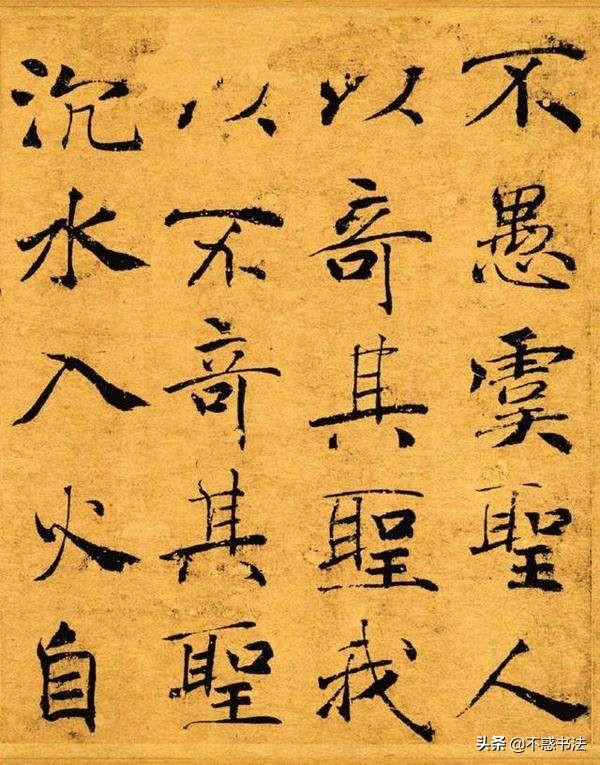 不愚虞聖人
以奇其聖我
以不奇其聖
沉水入火自
头条 @不惑书法